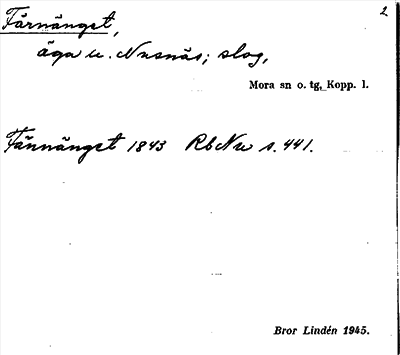 2
Tårnänget,
äga u. Nusnäs; slog,
Mora sn o. tg, Kopp. l.
Tännänget 1843 RbNu s. 441.
Bror Lindén 1945.